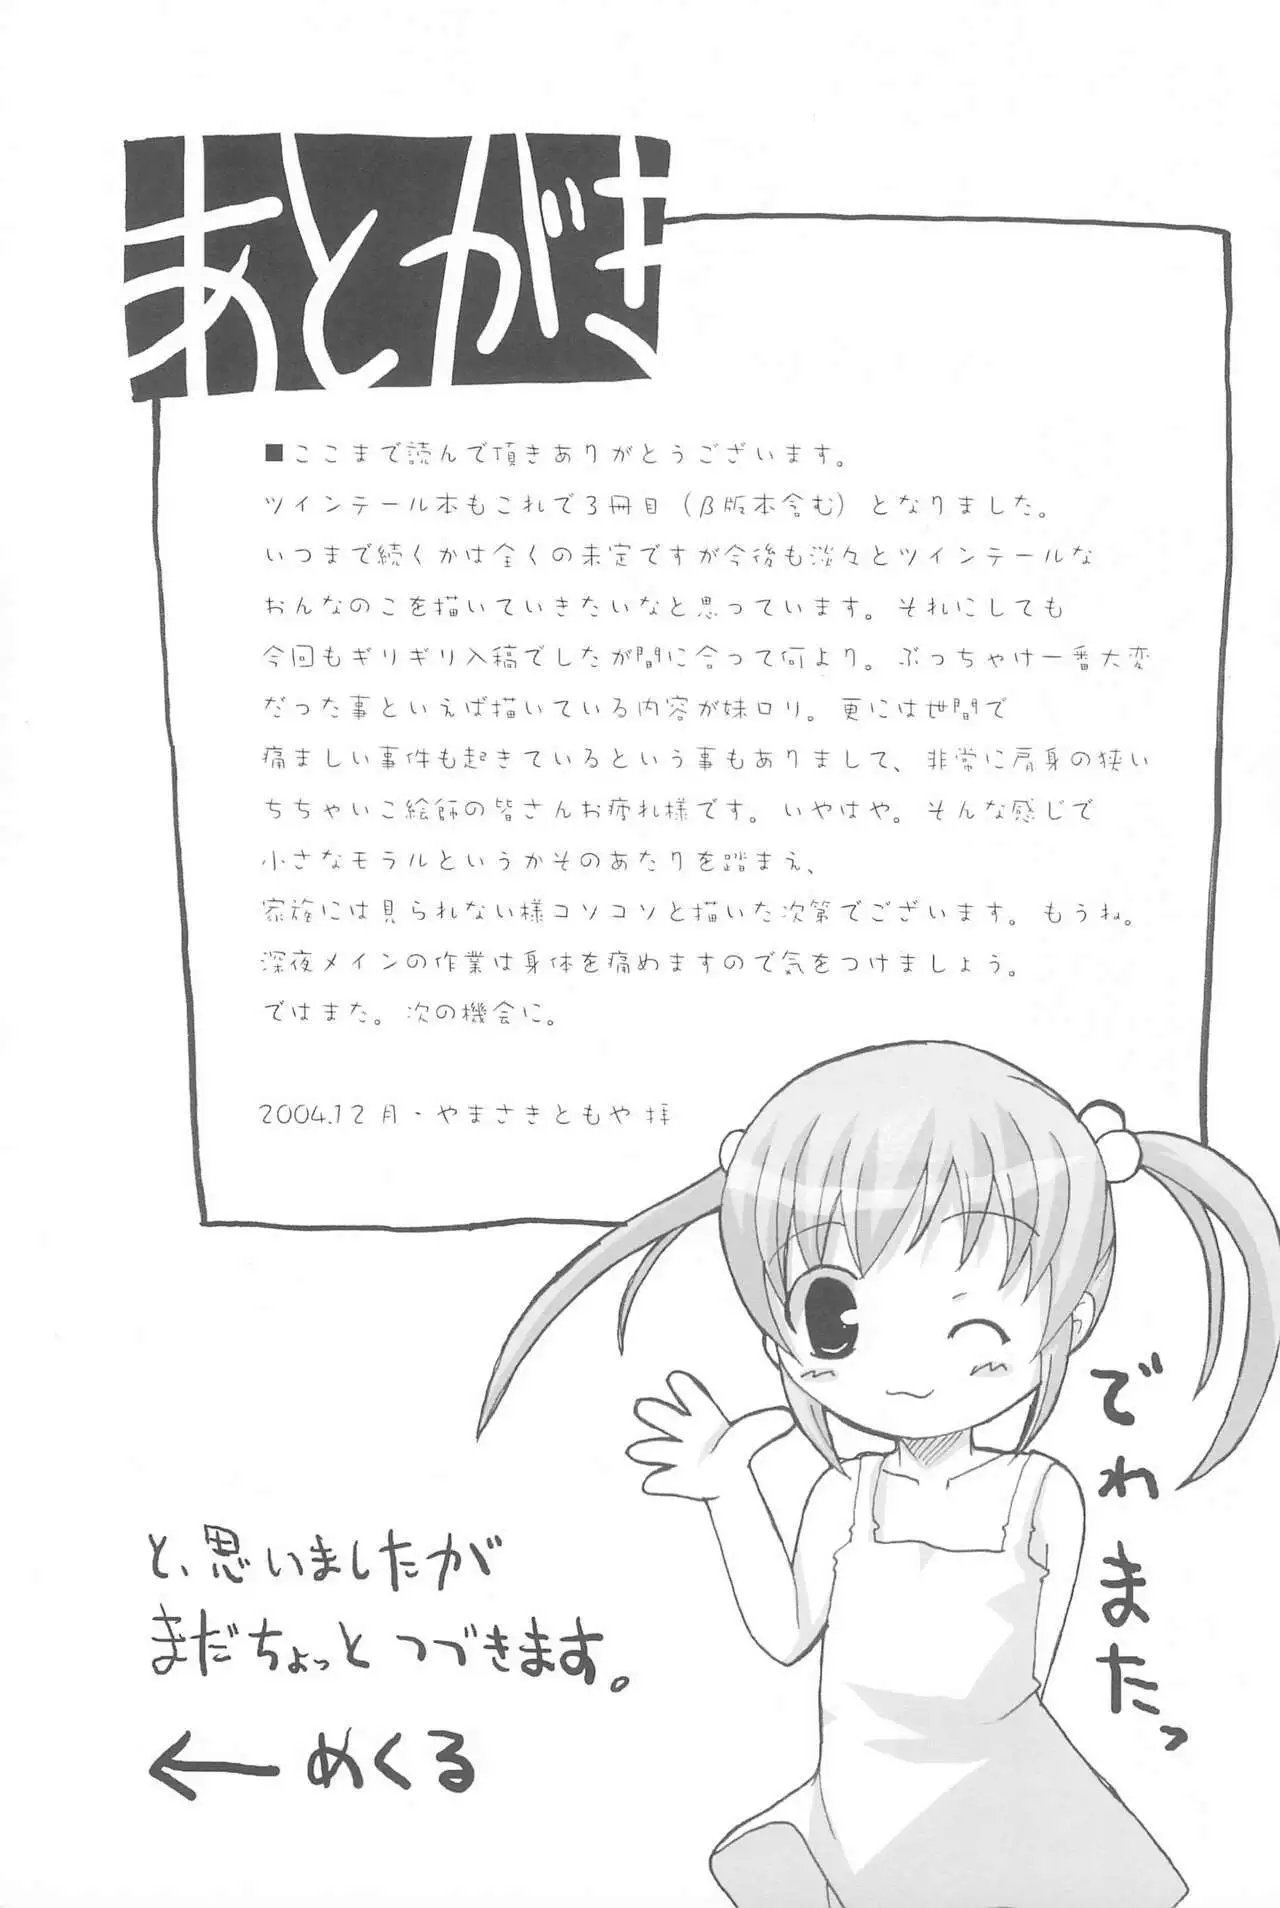 あとがき
■ここまで読んで頂きありがとうございます。
ツインテール本もこれで3冊目（β版本含む）となりました。
いつまで続くかは全くの未定ですが今後も淡々とツインテールな
おんなのこを描いていきたいなと思っています。それにしても
今回もギリギリ入稿でしたが間に合って何より。ぶっちゃけ一番大変
だった事といえば描いている内容が妹ロリ。更には世間で
痛ましい事件も起きているという事もありまして、非常に肩身の狭い
ちちゃいこ絵師の皆さんお疲れ様です。いやはや。そんな感じで
小さなモラルというかそのあたりを踏まえ、
家族には見られない様コソコソと描いた次第でございます。もうね。
深夜メインの作業は身体を痛めますので気をつけましょう。
ではまた。次の機会に。
2004.12月・やまさきともや 拝
でわまたっ
と、思いましたが
まだちょっとつづきます。
← めくる